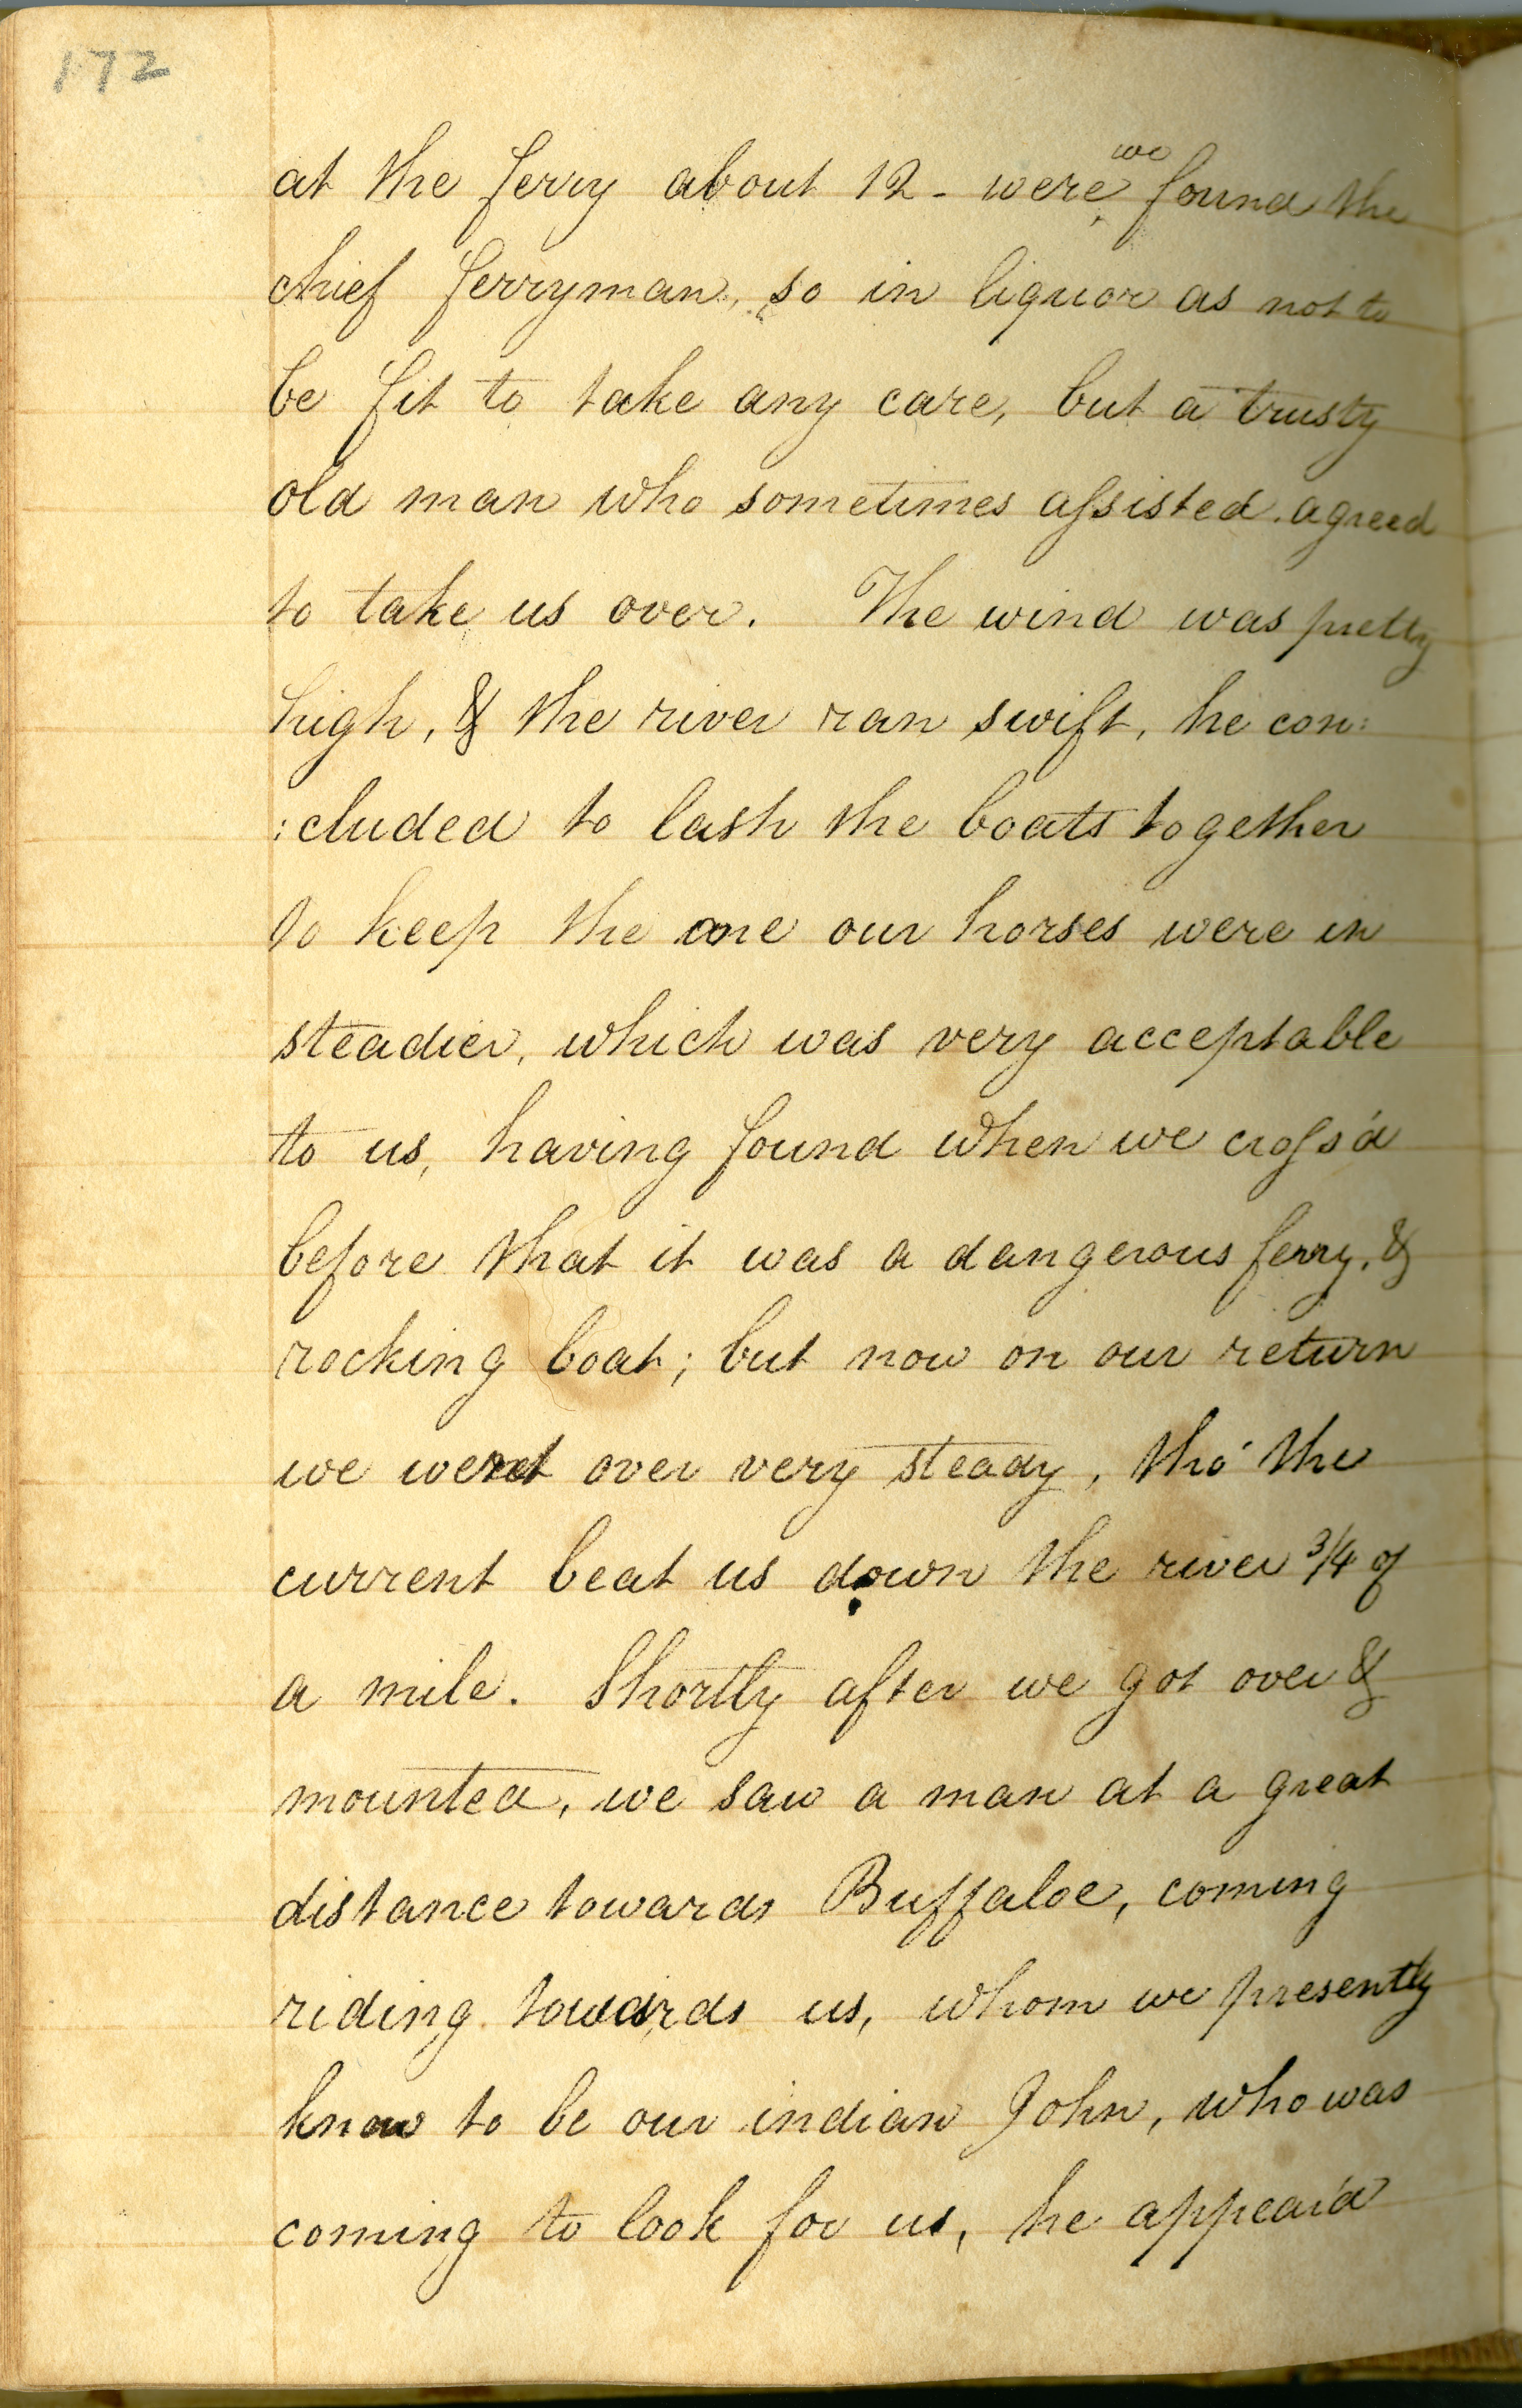 172
at the ferry about 12 - were we found the
chief ferryman, so in liquor as not to
be fit to take any care, but a trusty
old man who sometimes assisted. agreed
to take us over. The wind was pretty
high, & the river ran swift, he con:
:cluded to lash the boats together
to keep the one our horses were in
steadier, which was very acceptable
to us, having found when we cross'd
before that it was a dangerous ferry, &
rocking boat; but now on our return
we went over very steady, tho' the
current beat us down the river 3/4 of
a mile. Shortly after we got over &
mounted, we saw a man at a great
distance towards Buffaloe, coming
riding towards us, whom we presently
know to be our indian John, who was
coming to look for us, he appear'd